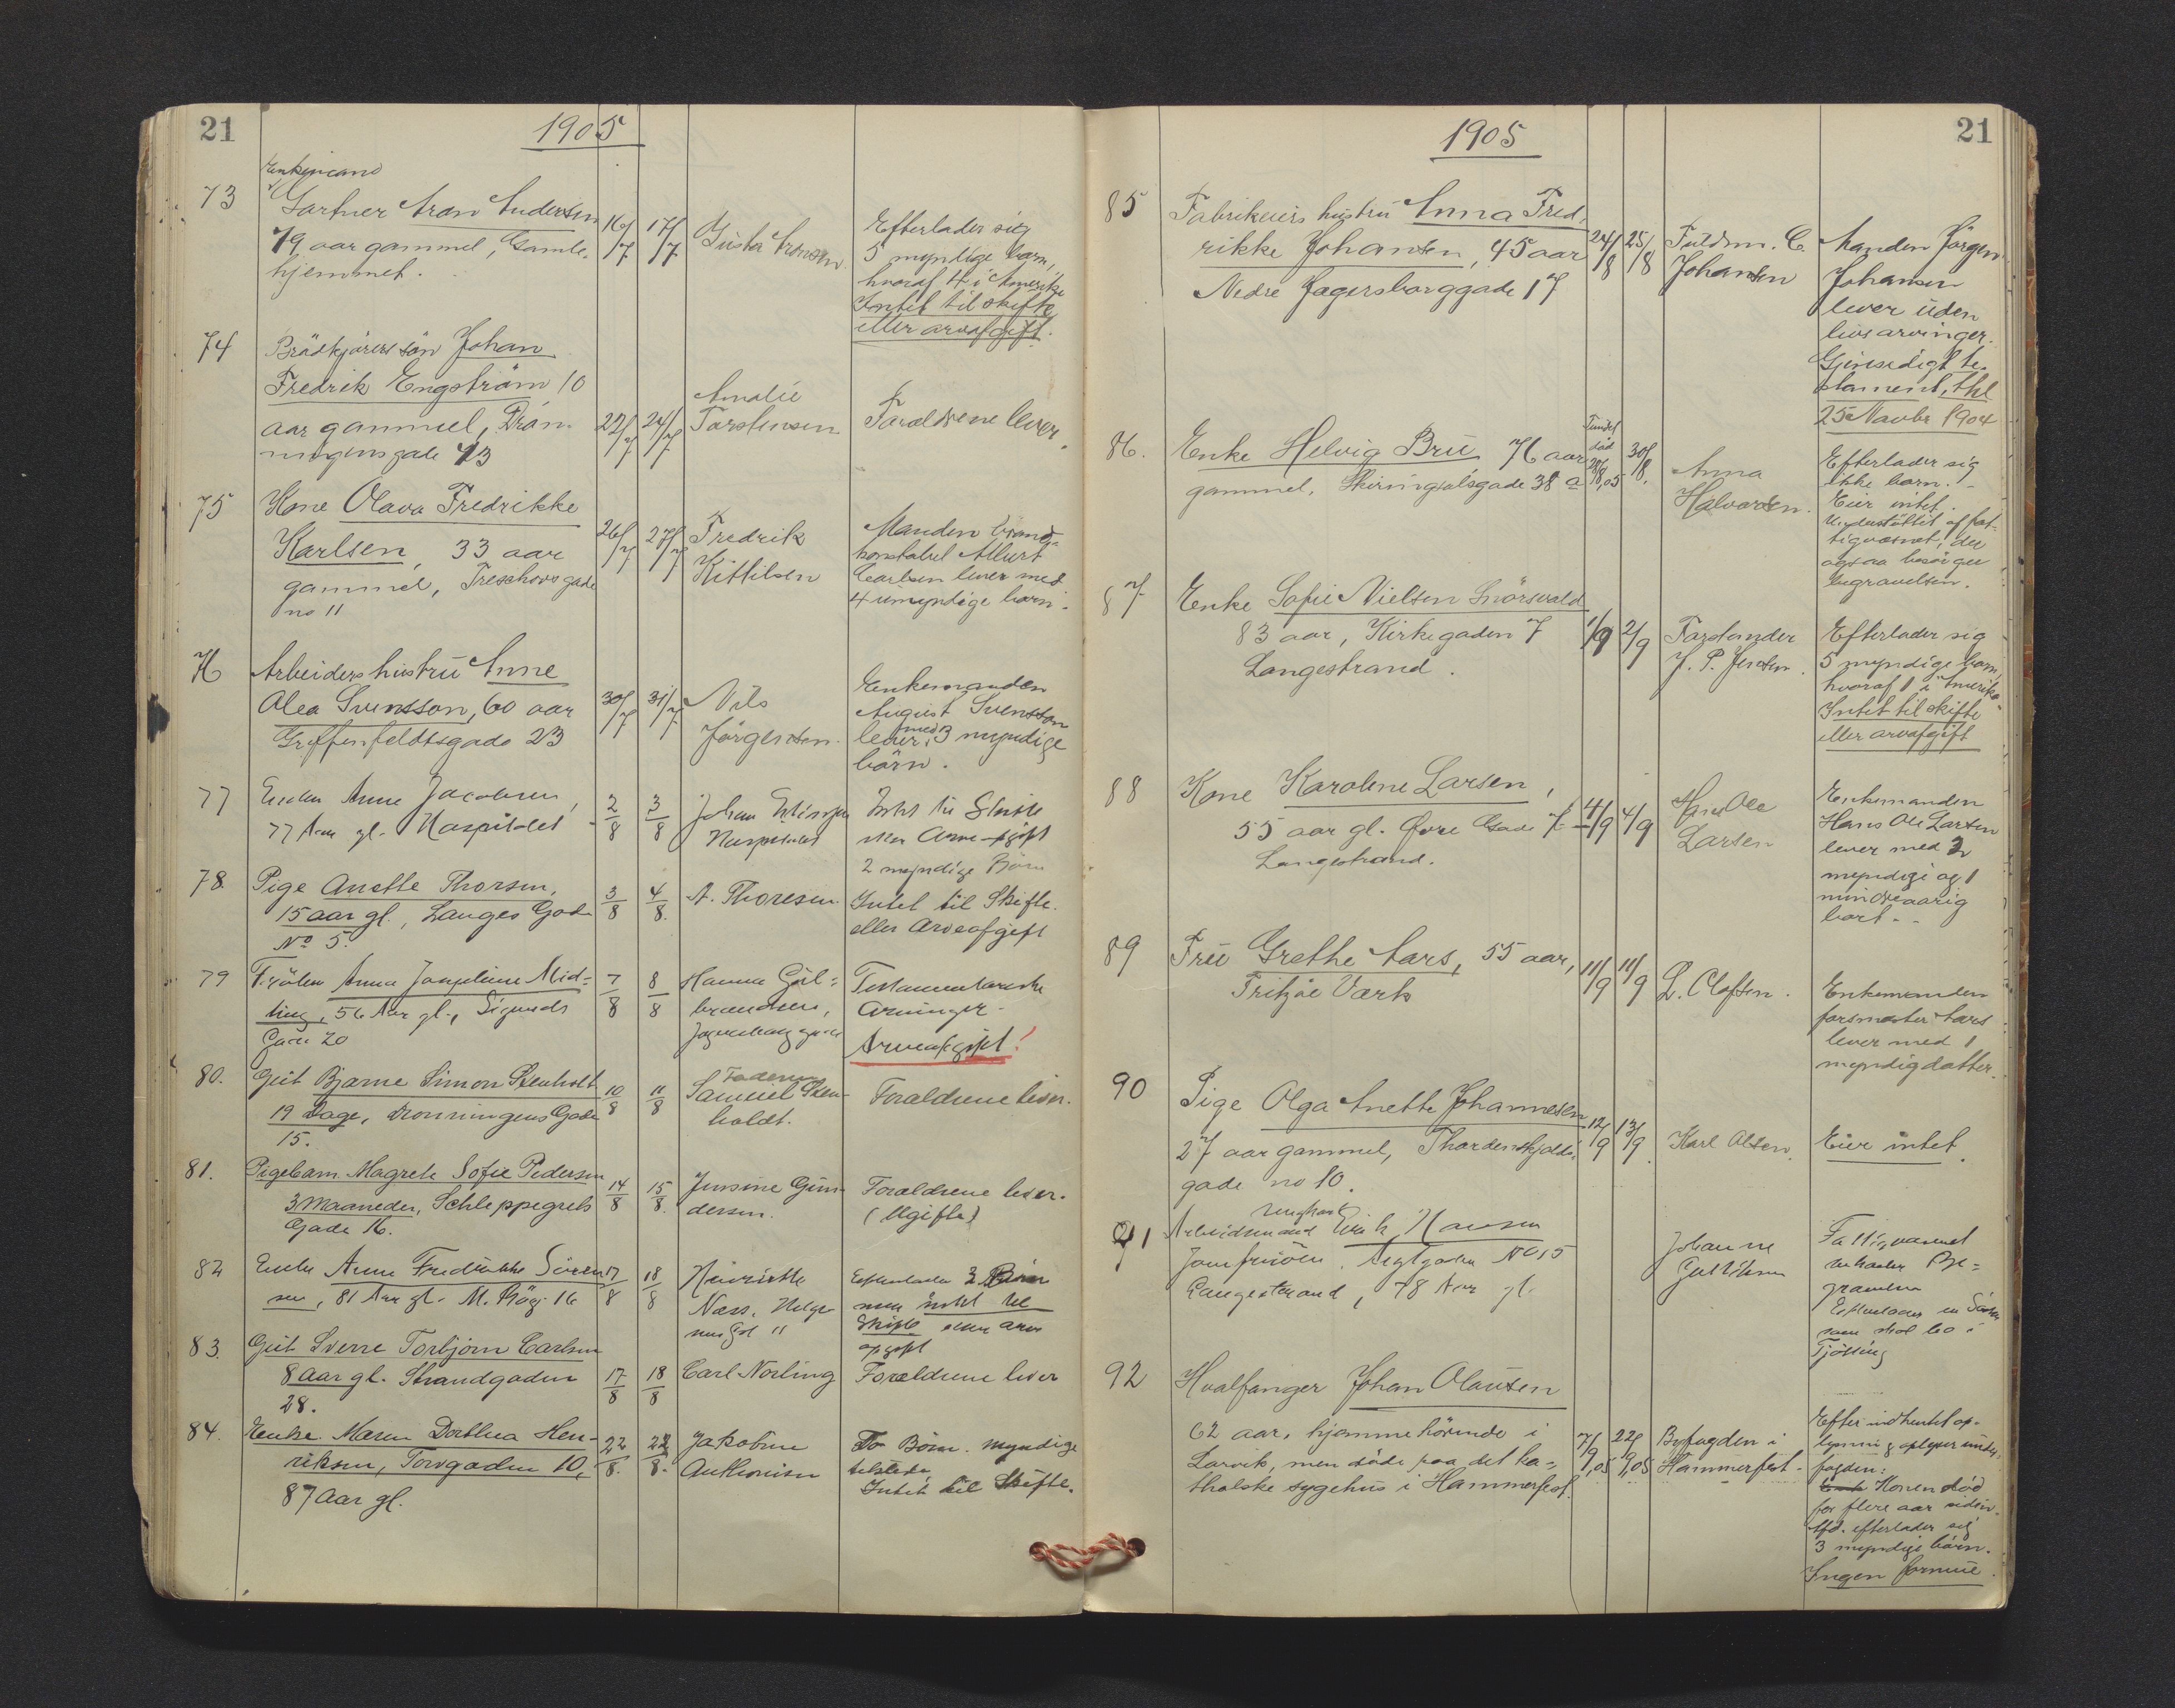 21
1905
Enkemand
73
Gartner Aron Andersen
79 aar gammel, Gamle-
hjemmet.
16/7
17/7
Gusta Aronsen
Efterlader sig
5 myndige barn,
hvoraf 4 i Amerika
Intet til skifte
eller arveafgift.
74
Brödkjörers sön Johan
Fredrik Engström 10
aar gammel, Dron-
ningensgade 43
22/7
24/7
Amalie
Torstensen
Foraldrene lever.
75
Kone Olava Fredrikke
Karlsen, 33 aar
gammel, Treschows gade
no 11
26/7
27/7
Fredrik
Kittilsen
Manden brand-
konstabel Albert
Carlsen lever med
4 umyndige barn.
76
Arbeiders hustru Anne
Olea Svensson, 60 aar
Griffenfeldtsgade 23
30/7
31/7
Nils
Jörgensen.
Enkemanden
August Svensson
lever med 3 myndige
börn.
77
Enken Anne Jacobsen,
77 Aar gl. Hospitalet
2/8
3/8
Johan
Hospitalet
Intet til Skifte
eller Arve-afgift
2 myndige Börn
78.
Pige Anette Thorsen,
15 aar gl., Langes Gade
No 5.
3/8
4/8.
A. Thoresen.
Intet til Skifte.
eller Arveafgift
79
Fröken Anna Josephine Mid-
ling, 56 Aar gl., Sigurds
Gade 20
7/8
8/8
Hanna Gul-
brandsen,
Testamentariske
Arvinger.
Arveafgift!
80.
Gut Bjarne Simon Stenholt
19 Dage, Dronningens Gade
15.
10/8
11/8
Faderen
Samuel Sten-
holdt.
Foraldrene lever.
81.
Pigebarn Magrete Sofie Pedersen
3 Maaneder, Schleppegrels
Gade 16.
14/8
15/8.
Jensine Gun-
dersen.
Foraldrene lever.
(Ugifte)
82
Enke Anne Fredrikke Sören-
sen, 81 Aar gl. M. 16
17/8
18/8
Henriette
Næss.
11
Efterlader 3 Börn
men intet til
Skifte eller arve
afgift
83.
Gut Sverre Torbjörn Carlsen
8 aar gl. Strandgaden
28.
17/8
18/8
Carl Norling
Forældrene lever
84.
Enke Maren Dorthea Hen-
riksen, Torvgaden 10,
87 aar gl.
22/8.
22/8.
Jakobine
Anthonisen
To Börn. myndige
tilstede.
Intet til Skifte.
21
1905
85
Fabrikeiers hustru Anna Fred-
rikke Johansen, 45 aar
Nedre Jagersborggade 17
24/8
25/8
Fuldm. C.
Johansen
Manden Jörgen
Johansen
lever uden
livsarvinger.
Gjensidigt te-
stament, thl
25 Novbr 1904
86.
Enke Helvig Bru 76 aar
gammel, Skiringsalsgade 38 a
Fundet
död
28/8,05
30/8.
Anna
Halvorsen.
Efterlader sig
ikke barn.
Eier intet.
Understöttet af fat-
tigvæsnet, der
ogsaa besörger
begravelsen.
87
Enke Sofie Nielsen Snörsvald
83 aar, Kirkegaden 7
Langestrand.
1/9
2/9
Forstander
J. P. Jensen.
Efterlader sig
5 myndige barn,
hvoraf 1 i Amerika.
Intet til skifte
eller arveafgift
88
Kone Karoline Larsen,
55 aar gl. Øvre Gade 7
Langestrand.
4/9
4/9
Hans Ole
Larsen
Enkemanden
Hans Ole Larsen
lever med 2
myndige og 1
mindreaarig
barn.
89
Fru Grethe Aars, 55 aar,
Fritzöe Værk
11/9
11/9
L. Olafsen.
Enkemanden
forsmester Aars
lever med 1
myndig datter.
90
Pige Olga Anette Johannesen
27 aar gammel, Thordenskjolds-
gade no 10.
12/9
13/9
Karl Olsen.
Eier intet.
91
ungkarl
Arbeidsmand Erik Hansen
Jomfruöen, No 15
Langestrand, 78 Aar gl.
Johanne
Gulliksen
Fattigvæsnet
bekoster Be-
gravelsen
Efterlader en Söster
som skal bo i
Tjölling
92
Hvalfanger Johan Olausen
62 aar, hjemmehörende i
Larvik, men döde paa det ka-
tholske sygehus i Hammerfest
7/9,05
22/9,05
Byfogden i
Hammerfest.
Efter indhentet op-
lysning oplyser under-
fogden:
Konen död
for flere aar siden.
Afd. efterlader sig
3 myndige börn.
Ingen formue.